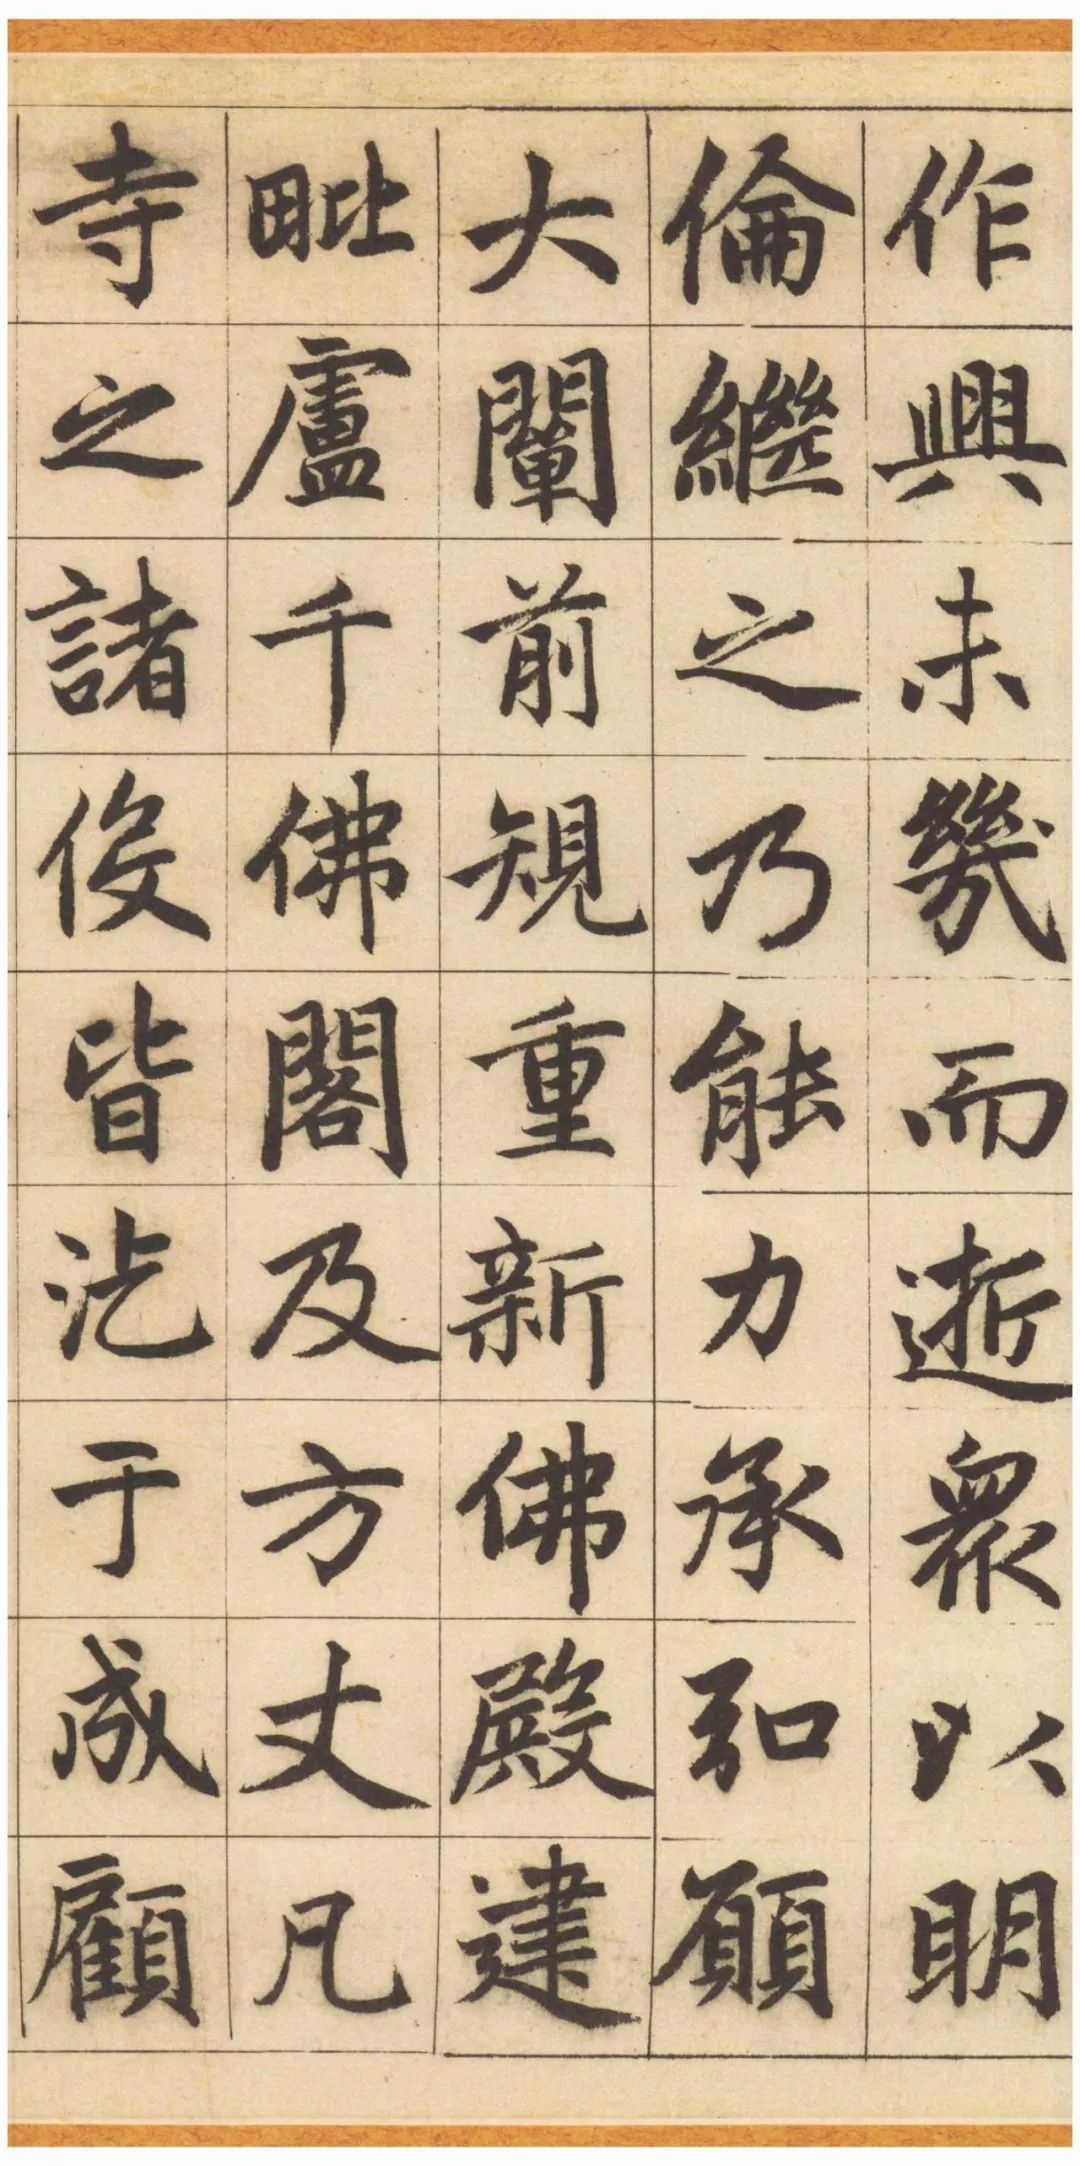 作興未幾而逝衆以明
倫繼之乃能力承弘願
大闡前規重新佛殿建
毗盧千佛閣及方丈凡
寺之諸役皆汔于成顧